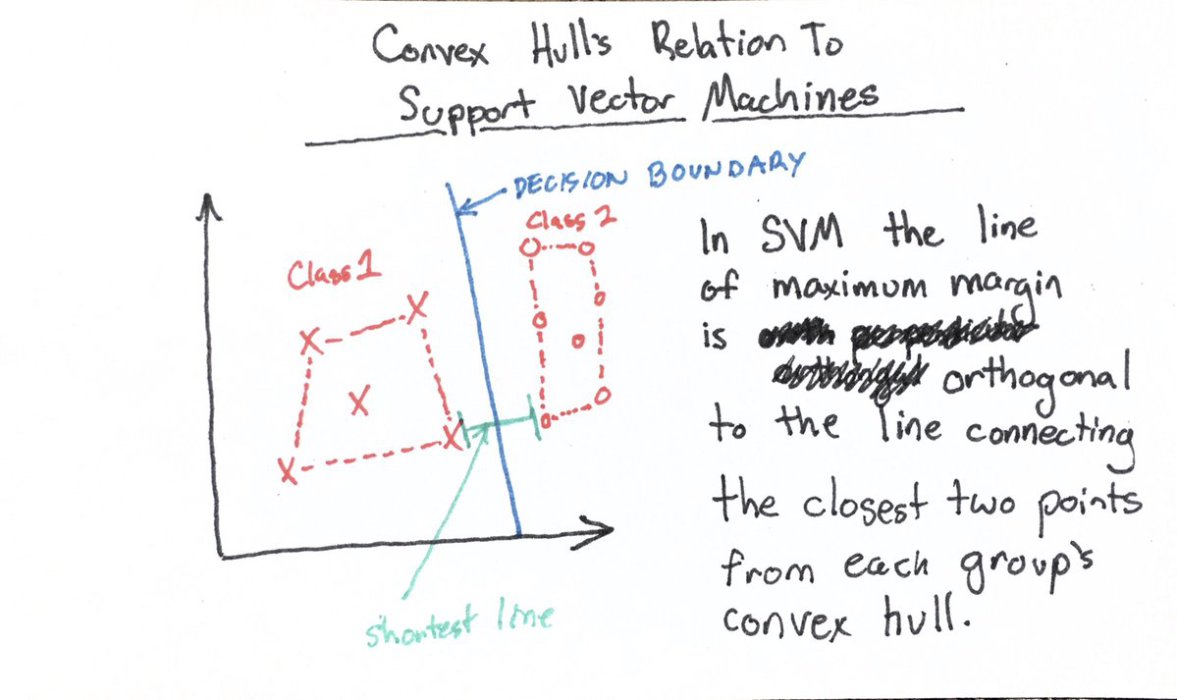 Convex Hull's Relation To
Support Vector Machines
DECISION BOUNDARY
Class 2
Class 1
In SVM the line
of maximum margin
is
orthogonal
to the line connecting
the closest two points
from each group's
convex hull.
shortest line